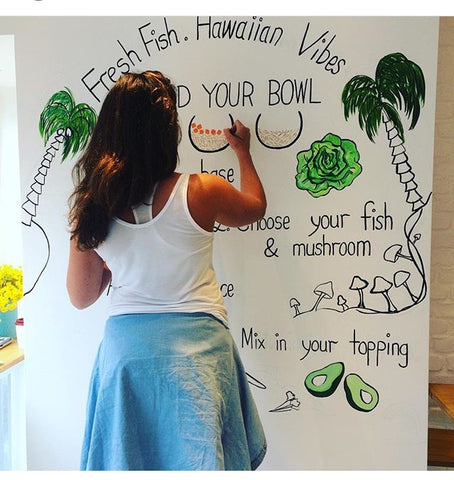 Fresh Fish. Hawaiian Vibes
D YOUR BOWL
base
2. Choose your fish
& mushroom
ce
Mix in your topping